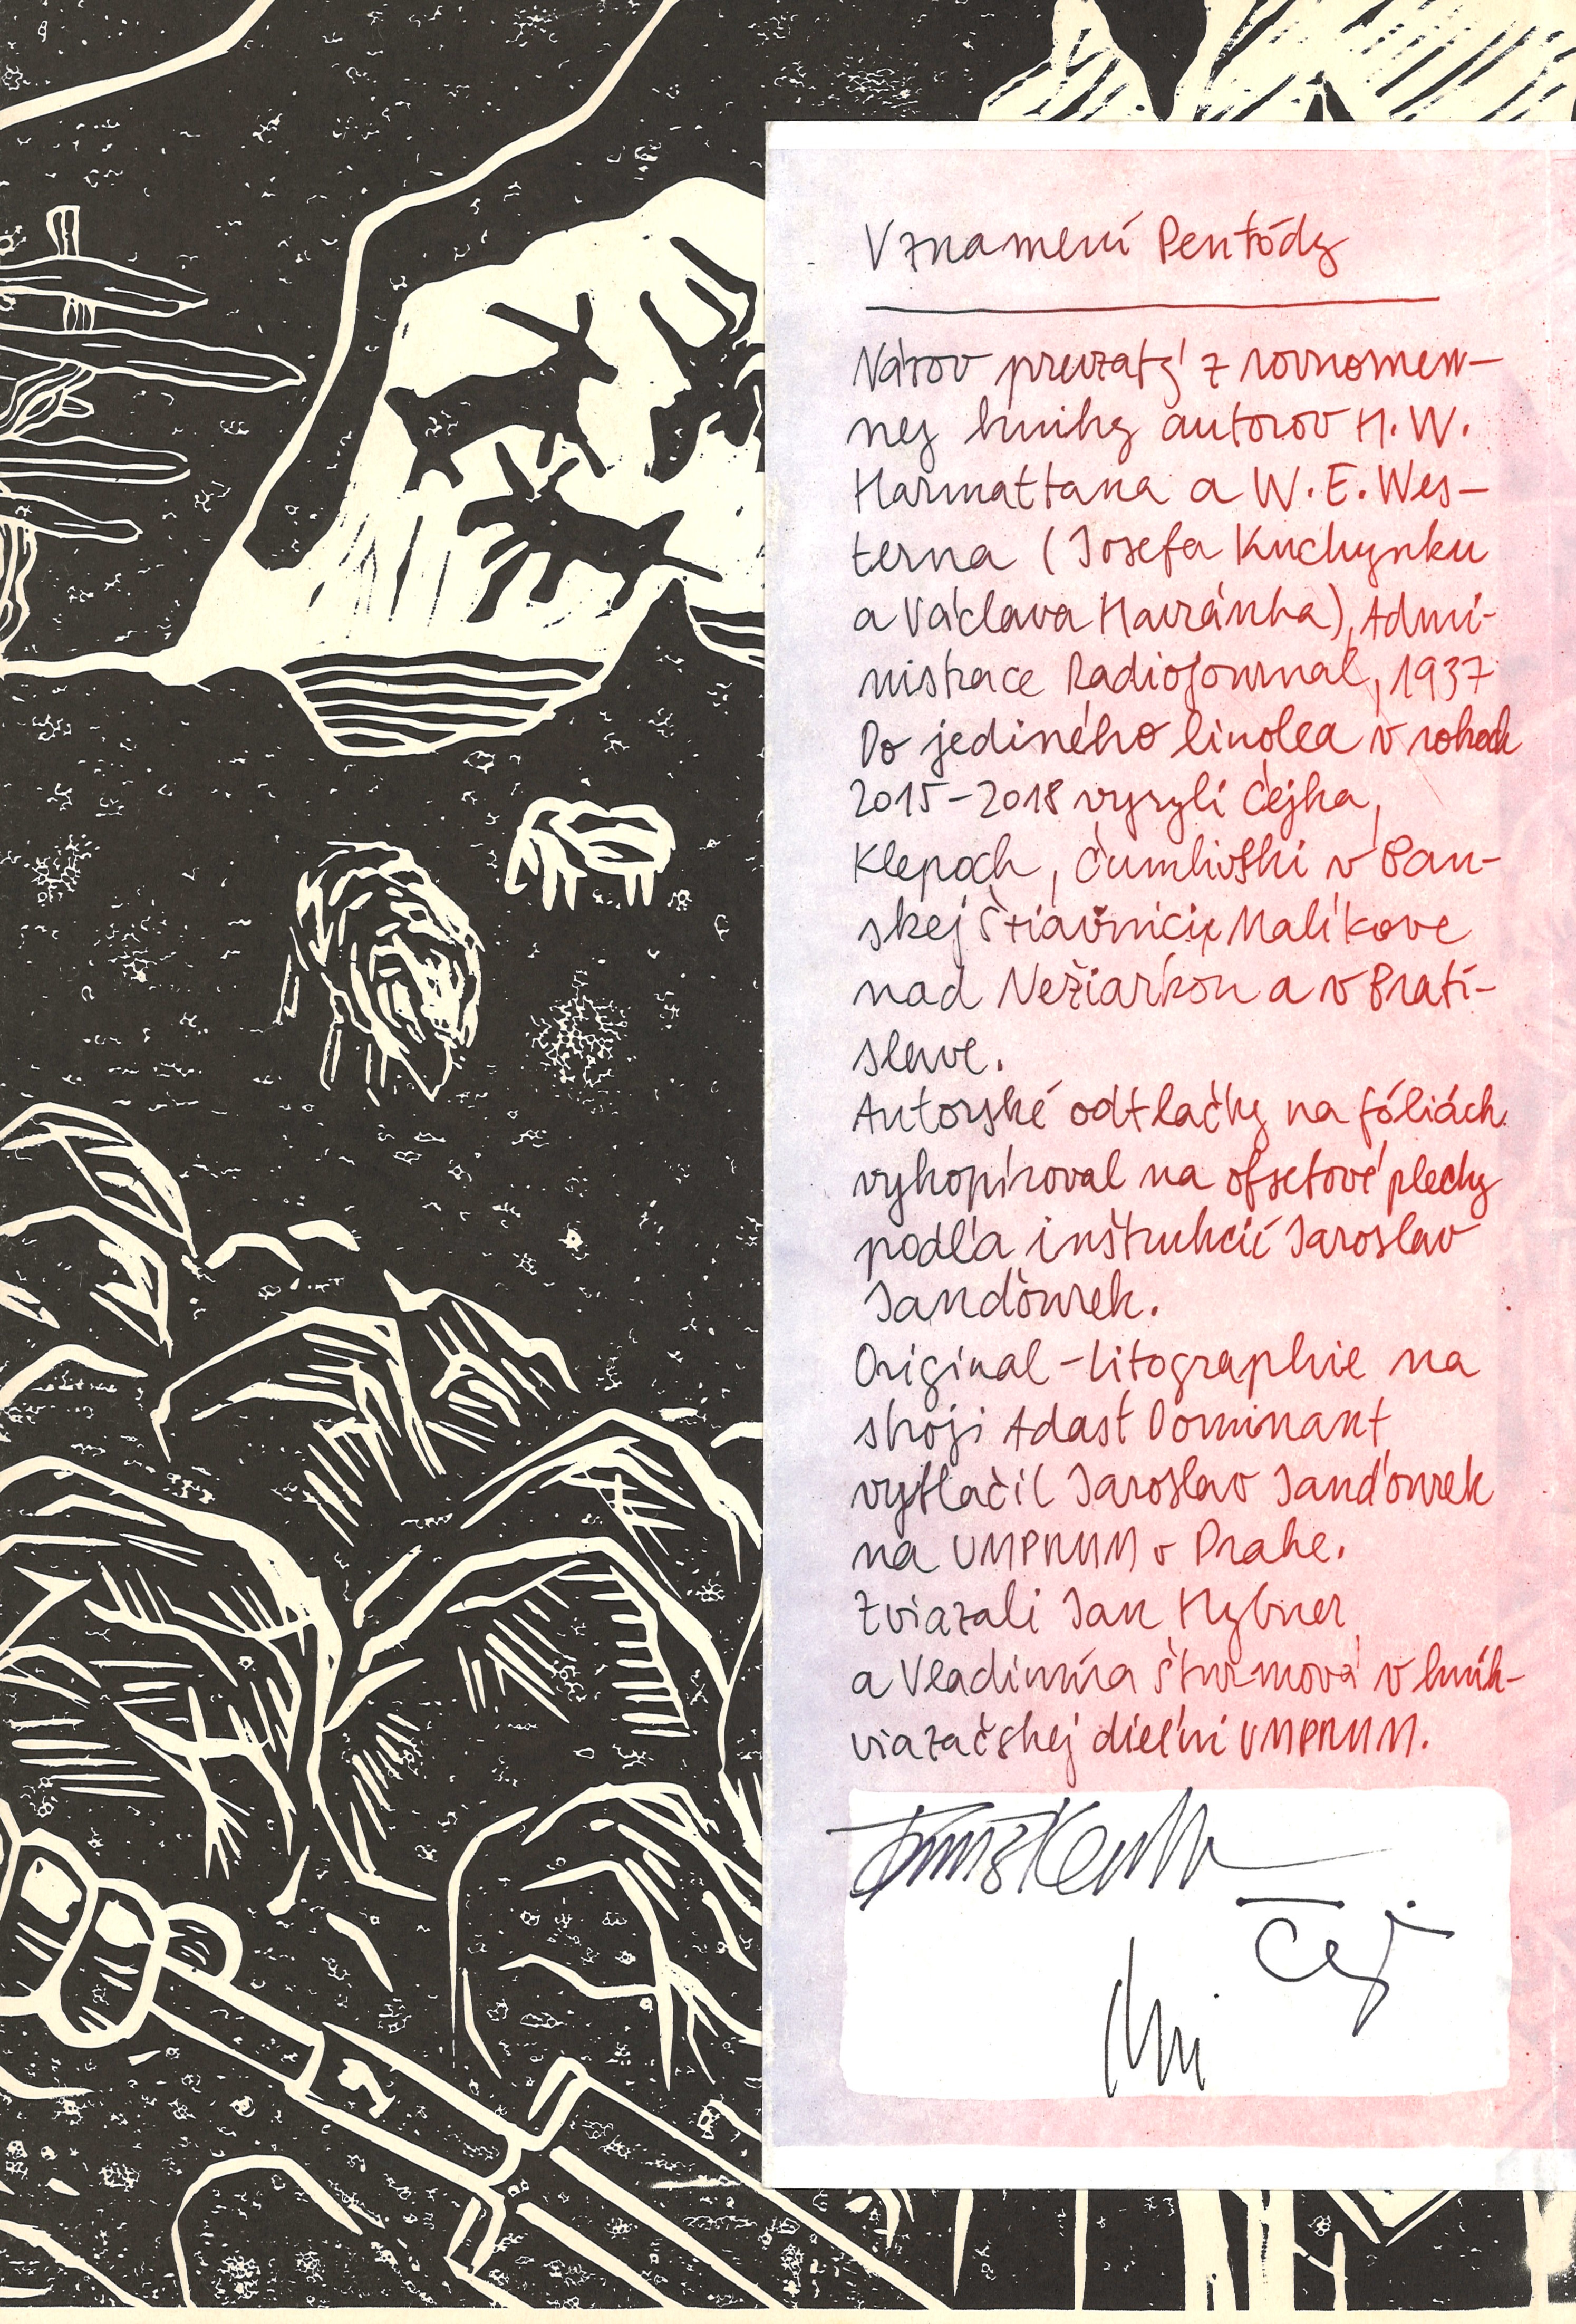 V znamení Pentódy
Názov prevzatý z rovnomen-
nej knihy autorov H. W.
Harmattana a W. E. Wes-
terna (Josefa Kuchynku
a Václava Havránka), Admi-
nistrace Radiojournal, 1937
Do jediného linolea v rokoch
2015-2018 vyryli Čejka,
Klepoch, Čumlivski v Ban-
skej Štiavnici, Malíkove
nad Nežiarkou a v Brati-
slave.
Autorské odtlačky na fóliách
vykopíroval na ofsetové plechy
podľa inštrukcií Jaroslav
Janďourek.
Original-litographie na
stroji Adast Dominant
vytlačil Jaroslav Janďourek
na UMPRUM v Prahe.
Zviazali Jan Hybner
a Vladimíra Šturmová v kník-
viazačskej dielni UMPRUM.